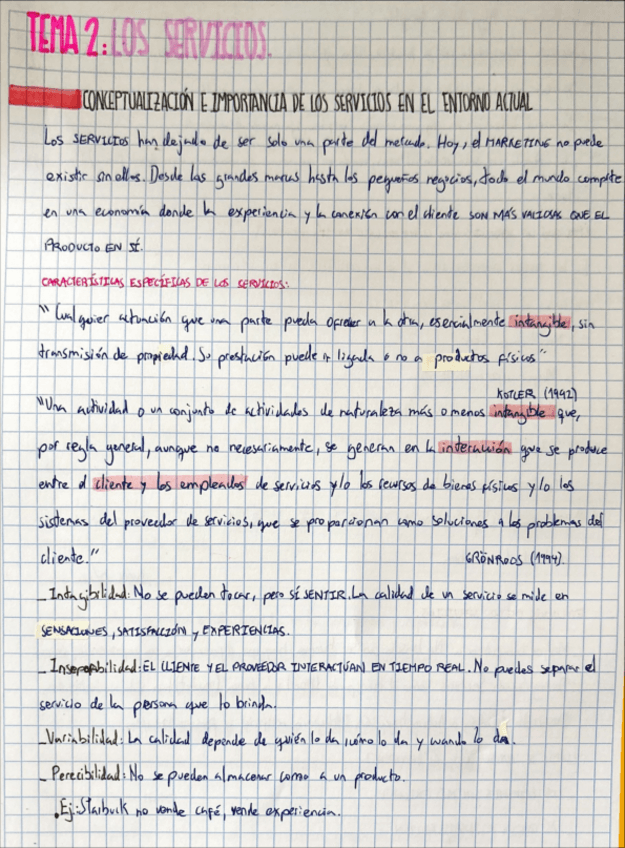 TEMA 2: LOS SERVICIOS.
CONCEPTUALIZACIÓN E IMPORTANCIA DE LOS SERVICIOS EN EL ENTORNO ACTUAL
Los SERVICIOS han dejado de ser solo una parte del mercado. Hoy, el MARKETING no puede
existir sin ellos. Desde las grandes marcas hasta los pequeños negocios, todo el mundo compite
en una economía donde la experiencia y la conexión con el cliente SON MÁS VALIOSAS QUE EL
PRODUCTO EN SÍ.
CARACTERÍSTICAS ESPECÍFICAS DE LOS SERVICIOS:
"Cualquier actuación que una parte pueda ofrecer a la otra, esencialmente intangible, sin
transmisión de propiedad. Su prestación puede ir ligada o no a productos físicos"
KOTLER (1992)
"Una actividad o un conjunto de actividades de naturaleza más o menos intangible que,
por regla general, aunque no necesariamente, se generan en la interacción que se produce
entre el cliente y los empleados de servicios y/o los recursos de bienes físicos y/o los
sistemas del proveedor de servicios, que se proporcionan como soluciones a los problemas del
cliente."
GRÖNROOS (1994).
_ Intagibilidad: No se pueden tocar, pero SÍ SENTIR. La calidad de un servicio se mide en
SENSACIONES, SATISFACCIÓN y EXPERIENCIAS.
_ Inseparabilidad: EL CLIENTE Y EL PROVEEDOR INTERACTÚAN EN TIEMPO REAL. No puedes separar el
servicio de la persona que lo brinda.
_ Variabilidad: La calidad depende de quién lo da, cómo lo da y cuando lo da.
_ Perecibilidad: No se pueden almacenar como a un producto.
. Ej: Starbuck no vende café, vende experiencia.